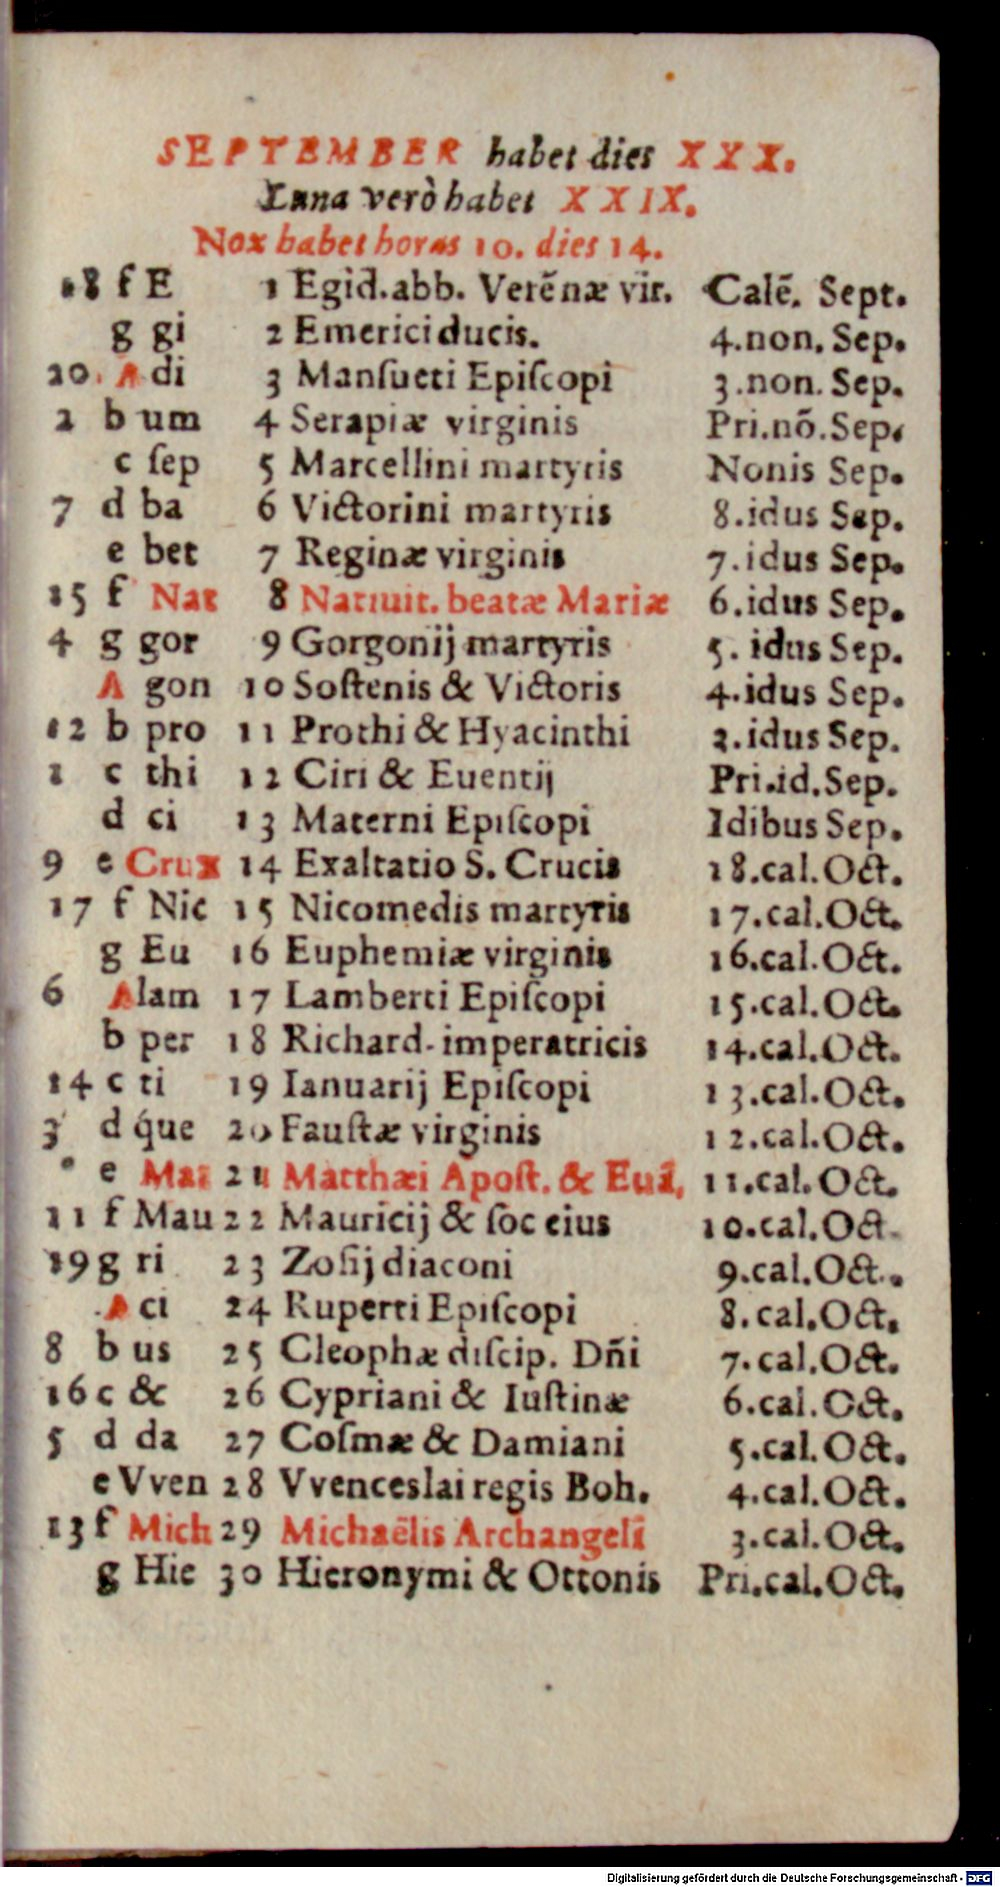 SEPTEMBER habet dies XXX.
Luna verò habet XXIX.
Nox habet horas 10. dies 14.
18 f E 1 Egid.abb. Verẽnæ vir. Calẽ. Sept.
g gi 2 Emerici ducis. 4.non. Sep.
20. A di 3 Manſueti Epiſcopi 3.non. Sep.
2 b um 4 Serapiæ virginis Pri.nõ.Sep.
c ſep 5 Marcellini martyris Nonis Sep.
7 d ba 6 Victorini martyris 8.idus Sep.
e bet 7 Reginæ virginis 7.idus Sep.
15 f Nat 8 Natiuit. beatæ Mariæ 6.idus Sep.
4 g gor 9 Gorgonij martyris 5. idus Sep.
A gon 10 Soſtenis & Victoris 4.idus Sep.
12 b pro 11 Prothi & Hyacinthi 3.idus Sep.
1 c thi 12 Ciri & Euentij Pri.id.Sep.
d ci 13 Materni Epiſcopi Idibus Sep.
9 e Crux 14 Exaltatio S. Crucis 18.cal.Oct.
17 f Nic 15 Nicomedis martyris 17.cal.Oct.
g Eu 16 Euphemiæ virginis 16.cal.Oct.
6 A lam 17 Lamberti Epiſcopi 15.cal.Oct.
b per 18 Richard. imperatricis 14.cal.Oct.
14 c ti 19 Ianuarij Epiſcopi 13.cal.Oct.
3 d q́ue 20 Fauſtæ virginis 12.cal.Oct.
e Mat 21 Matthæi Apoſt. & Euã. 11.cal.Oct.
11 f Mau 22 Mauricij & ſoc eius 10.cal.Oct.
19 g ri 23 Zoſij diaconi 9.cal.Oct.
A ci 24 Ruperti Epiſcopi 8.cal.Oct.
8 b us 25 Cleophæ diſcip. Dñi 7.cal.Oct.
16 c & 26 Cypriani & Iuſtinæ 6.cal.Oct.
5 d da 27 Coſmæ & Damiani 5.cal.Oct.
e Vven 28 Vvenceslai regis Boh. 4.cal.Oct.
13 f Mich 29 Michaëlis Archangeli 3.cal.Oct.
g Hie 30 Hieronymi & Ottonis Pri.cal.Oct.
Digitalisierung gefördert durch die Deutsche Forschungsgemeinschaft - DFG